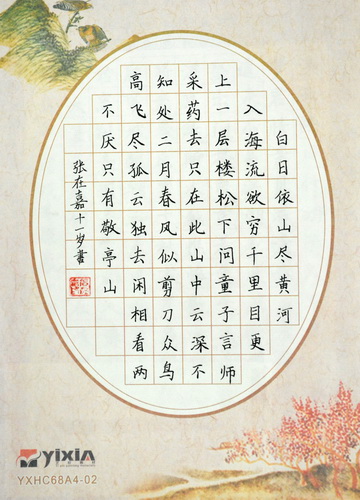 白日依山尽黄河
入海流欲穷千里目更
上一层楼松下问童子言师
采药去只在此山中云深不
知处二月春风似剪刀众鸟
高飞尽孤云独去闲相看两
不厌只有敬亭山
张在嘉十一岁書
yixin
YXHC68A4-02